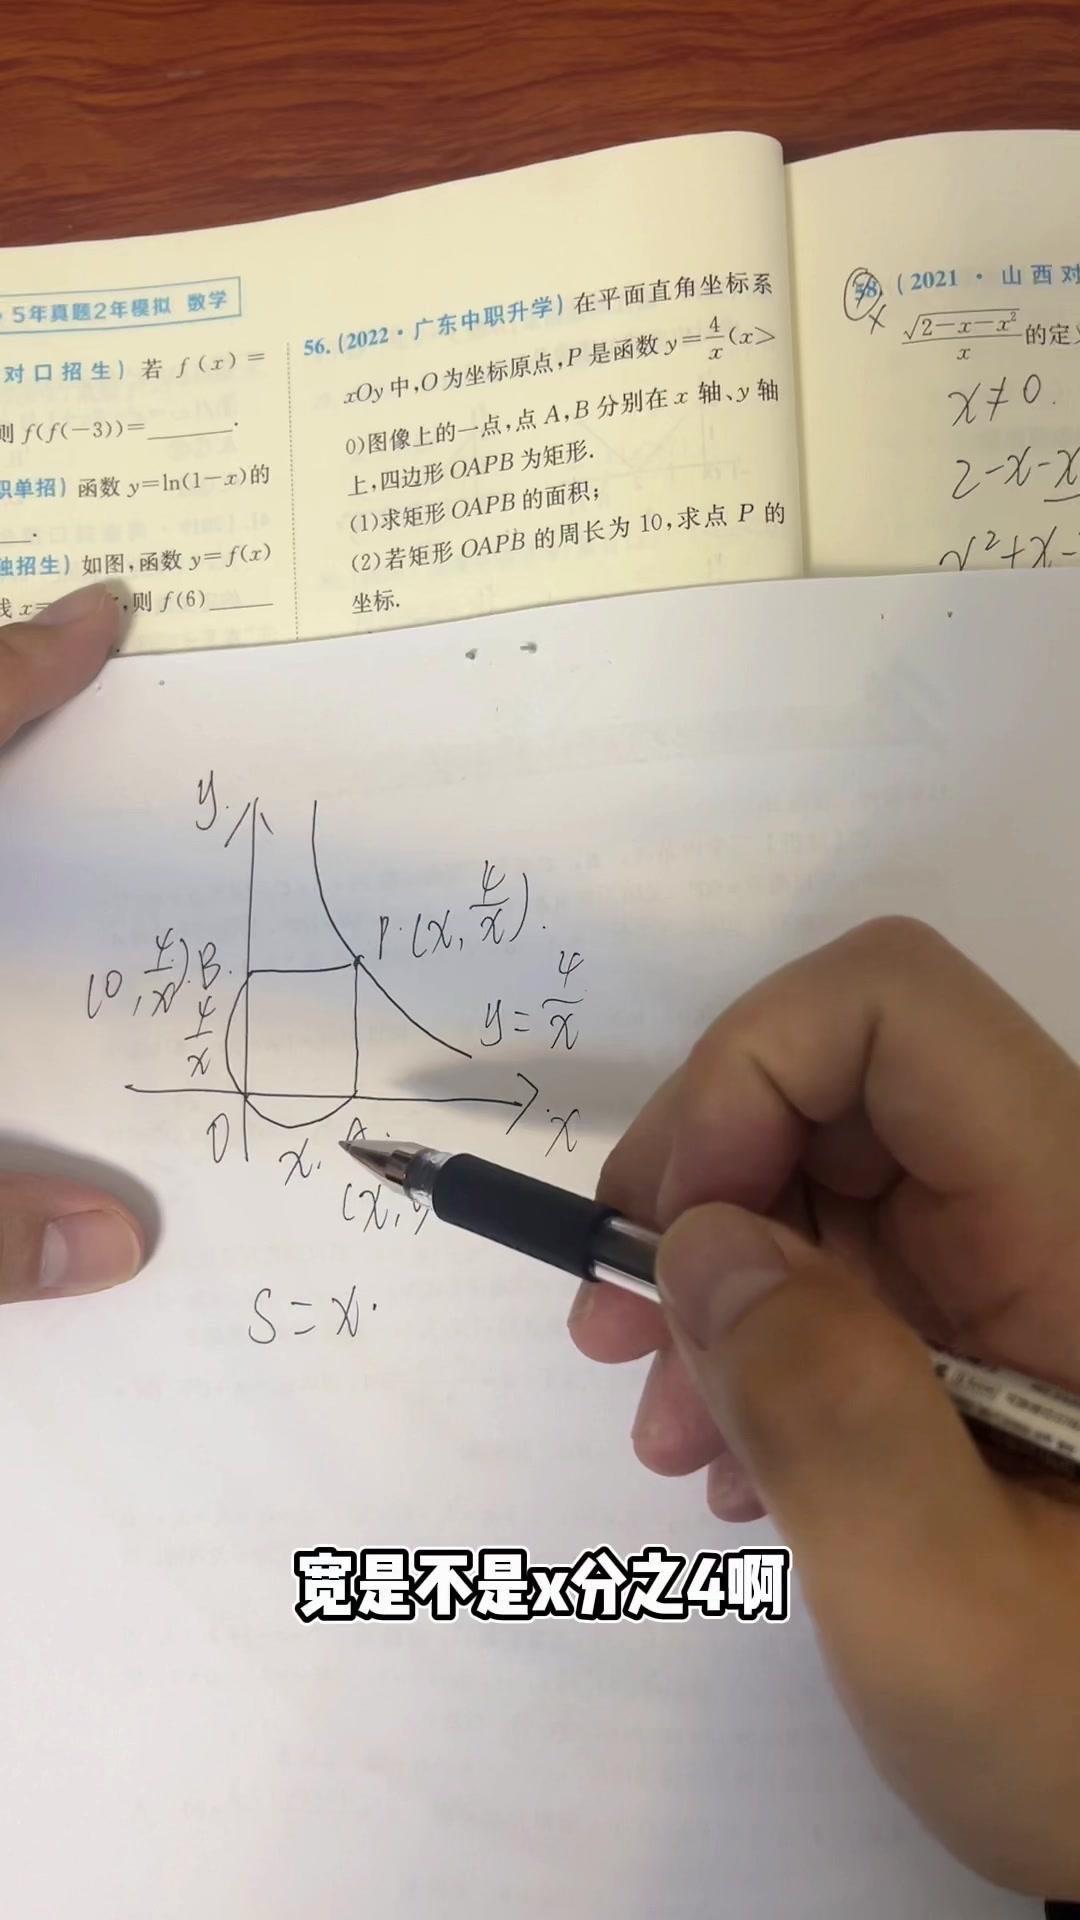 ·5年真题2年模拟 数学
对口招生) 若 f(x)=
则 f(f(-3))=______.
职单招) 函数 y=ln(1-x)的
独招生) 如图,函数 y=f(x)
线 x=
,则 f(6)____
56.(2022·广东中职升学) 在平面直角坐标系
xOy 中,O 为坐标原点,P 是函数 y=4/x(x>
0)图像上的一点,点 A,B 分别在 x 轴、y 轴
上,四边形 OAPB 为矩形.
(1)求矩形 OAPB 的面积;
(2)若矩形 OAPB 的周长为 10,求点 P 的
坐标.
58.(2021·山西对
√(2-x-x²)/x 的定
x≠0.
2-x-x
x²+x-
y
P.(x, 4/x).
(0, 4/x).B.
y=4/x
4/x
O
x.
A.
x
(x,
S=x·
宽是不是x分之4啊